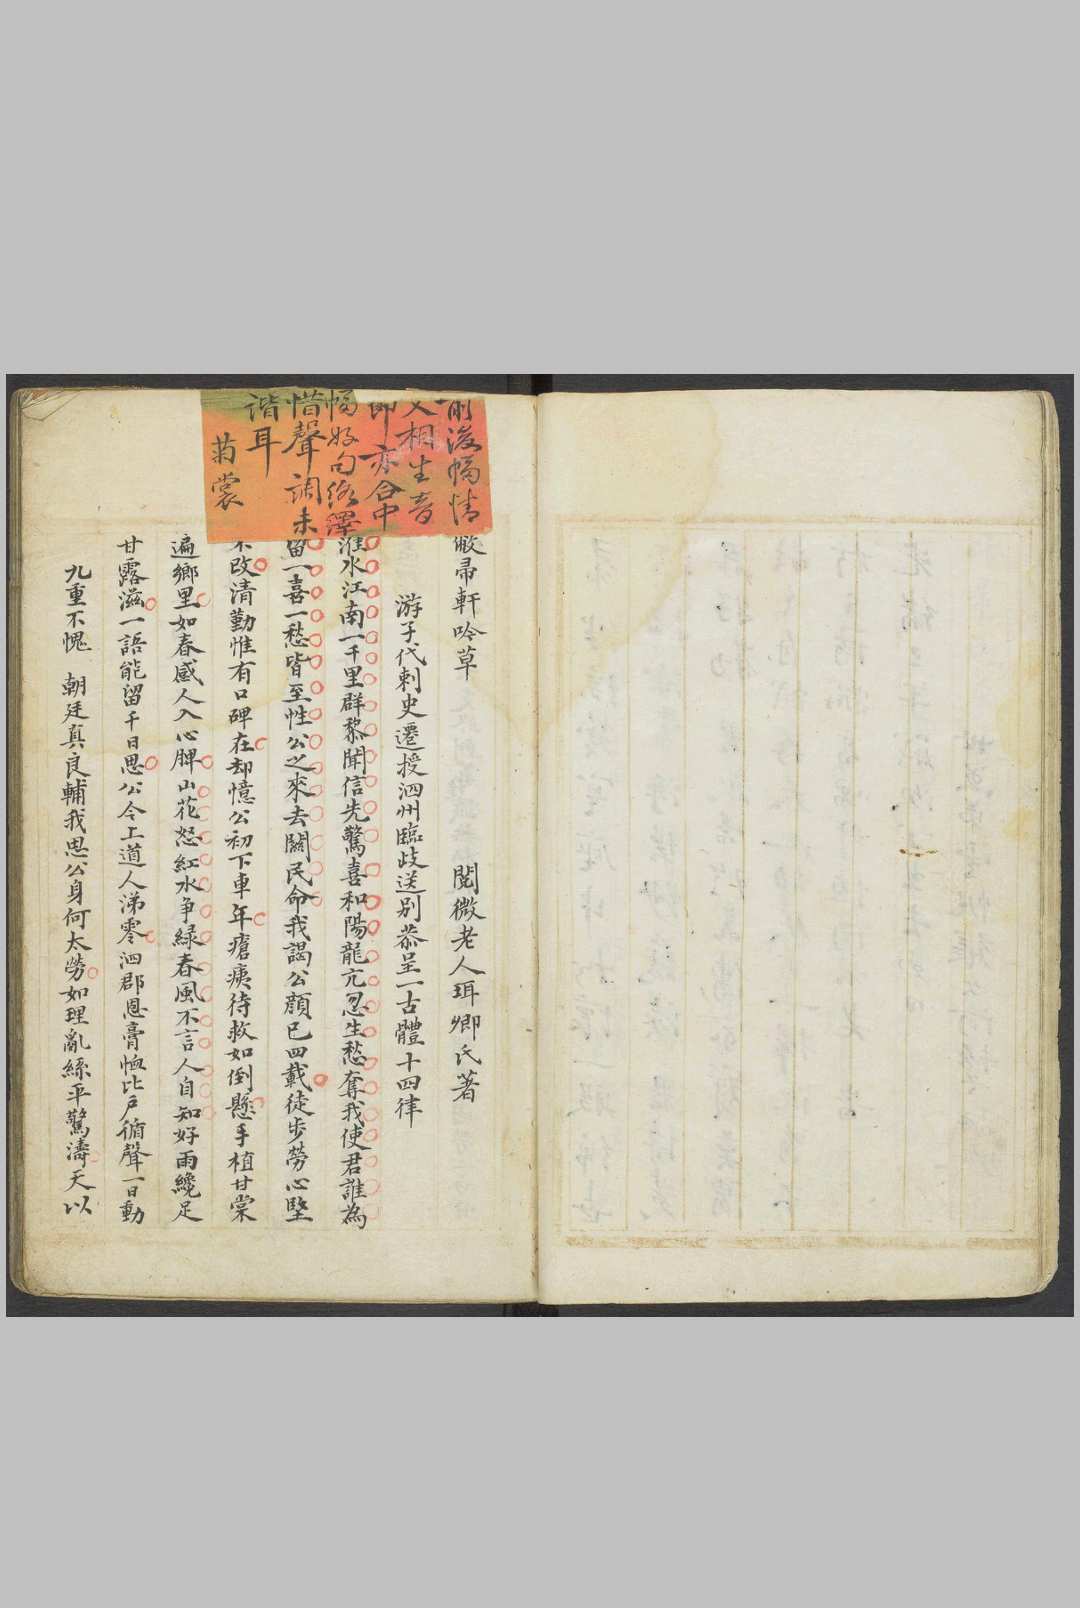 前後幅情
文相生音
節亦合中
幅好句絡繹
惜聲調未
諧耳
菊裳
敝帚軒吟草 閱微老人珥卿氏著
游子代刺史遷授泗州臨歧送別恭呈一古體十四律
淮水江南一千里群黎聞信先驚喜和陽龍亢忽生愁奪我使君誰為
留一喜一愁皆至性公之來去關民命我謁公顏已四載徒步勞心堅
不改清勤惟有口碑在却憶公初下車年瘡痍待救如倒懸手植甘棠
遍鄉里如春感人入心脾山花怒紅水爭綠春風不言人自知好雨纔足
甘露滋一語能留千日思公今上道人涕零泗郡恩膏恤比戶循聲一日動
九重不愧 朝廷真良輔我思公身何太勞如理亂絲平驚濤天以